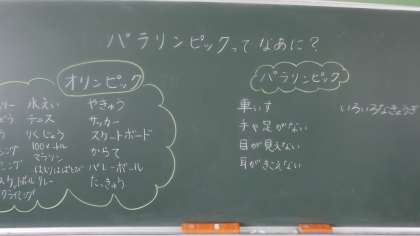 パラリンピックってなあに?
オリンピック
水えい やきゅう
テニス サッカー
りくじょう スケートボード
100メートル からて
マラソン
はしりはばとび バレーボール
リレー たっきゅう
パラリンピック
車いす いろいろなきょうぎ
手や足がない
目が見えない
耳がきこえない